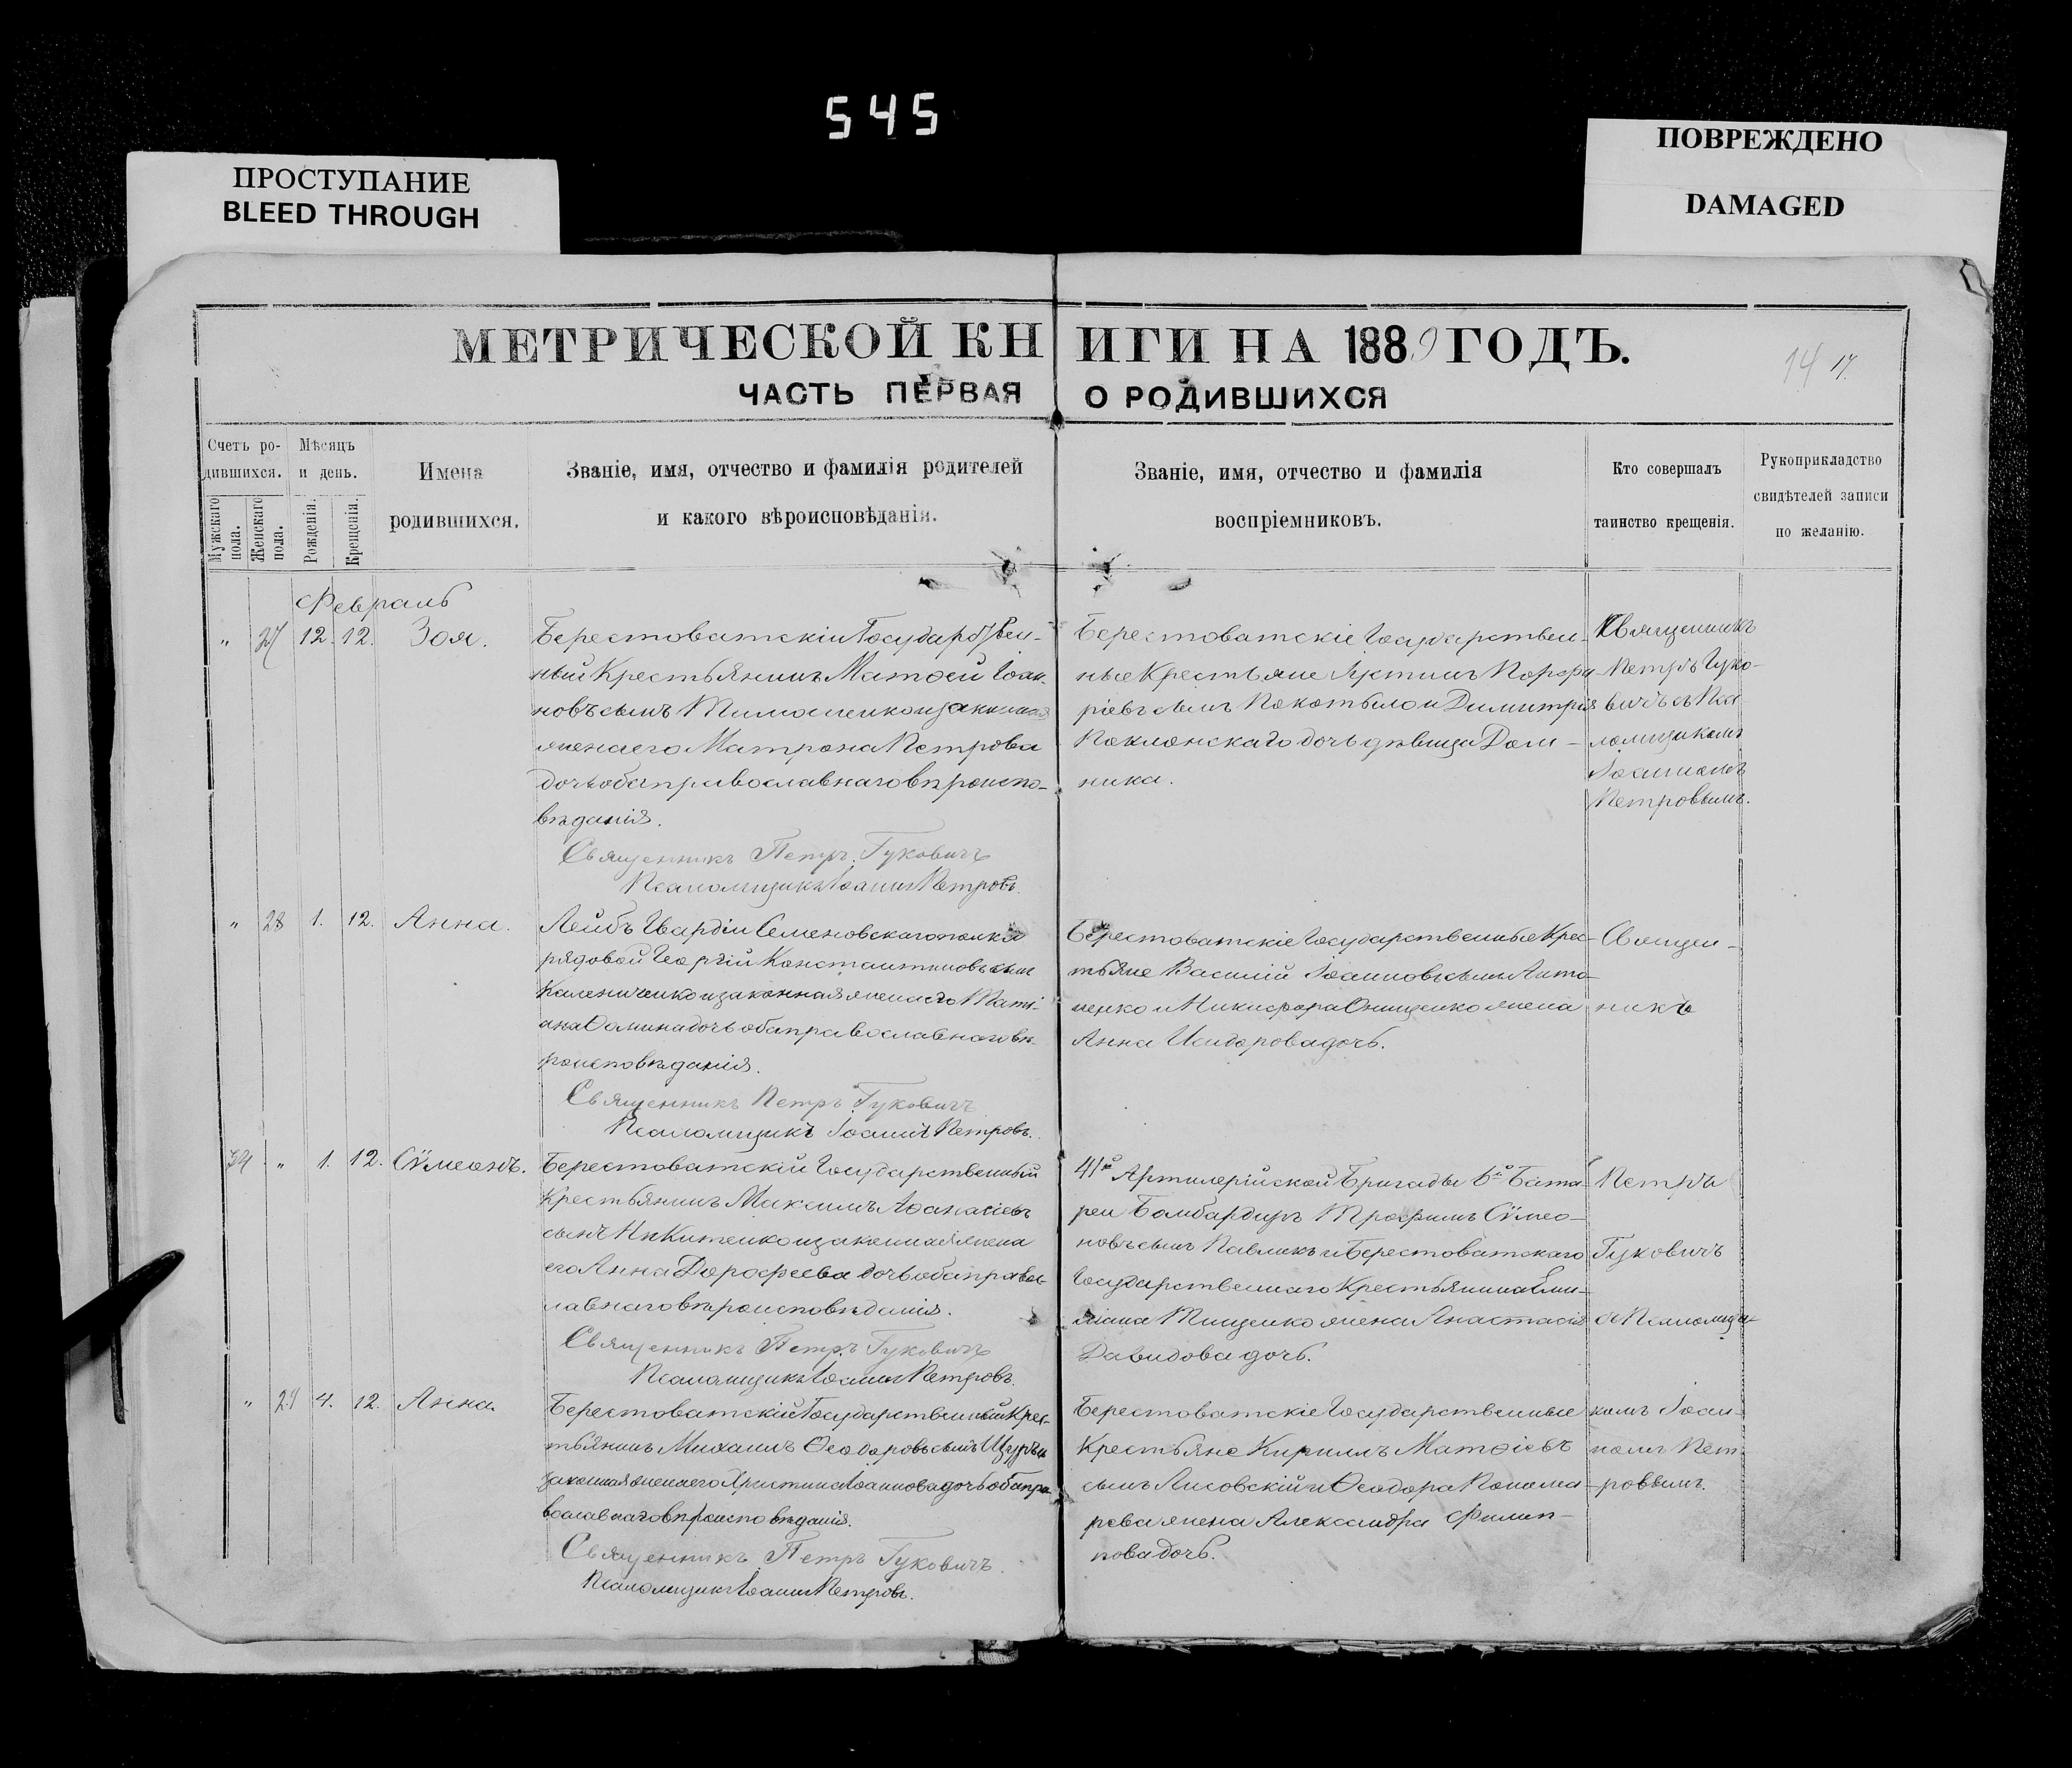 545
ПРОСТУПАНИЕ
BLEED THROUGH
ПОВРЕЖДЕНО
DAMAGED
МЕТРИЧЕСКОЙ КНИГИ НА 1889 ГОДЪ.
14 17.
ЧАСТЬ ПЕРВАЯ О РОДИВШИХСЯ
Счетъ ро-
дившихся.
Мужскаго пола.
Женскаго пола.
Мѣсяцъ
и день.
Рожденія.
Крещенія.
Имена
родившихся.
Званіе, имя, отчество и фамилія родителей
и какого вѣроисповѣданія.
Званіе, имя, отчество и фамилія
воспріемниковъ.
Кто совершалъ
таинство крещенія.
Рукоприкладство
свидѣтелей записи
по желанію.
Февраль
" 27 12. 12. Зоя.
Берестоватскій Государствен-
ный Крестьянинъ Матѳей Іоан-
новъ сынъ Тимошенко и законная
жена его Матрона Петрова
дочь оба православнаго вѣроиспо-
вѣданія.
Священникъ Петръ Гуковичъ
Псаломщикъ Іоаннъ Петровъ.
Берестоватскіе Государствен-
ные Крестьяне Іустинъ Порфи-
ріевъ сынъ Покотыло и Димитрія
Поклонскаго дочь дѣвица Дом-
ника.
Священникъ
Петръ Гуко-
вичъ съ Пса-
ломщикомъ
Іоанномъ
Петровымъ.
" 28 1. 12. Анна.
Лейбъ Гвардіи Семеновскаго полка
рядовой Георгій Константиновъ сынъ
Калениченко и законная жена его Таті-
ана Ѳомина дочь оба православнаго вѣ-
роисповѣданія.
Священникъ Петръ Гуковичъ
Псаломщикъ Іоаннъ Петровъ.
Берестоватскіе Государственные Крес-
тьяне Василій Іоанновъ сынъ Анто-
ненко и Никифора Онищенко жена
Анна Исидорова дочь.
Священ-
никъ
34 " 1. 12. Сѵмеонъ.
Берестоватскій Государственный
Крестьянинъ Максимъ Аѳанасіевъ
сынъ Никитенко и законная жена
его Анна Дорофеева дочь оба правос-
лавнаго вѣроисповѣданія.
Священникъ Петръ Гуковичъ
Псаломщикъ Іоаннъ Петровъ.
41й Артилерійской Бригады 6й Бата-
реи Бомбардиръ Трофимъ Сѵмео-
новъ сынъ Павликъ и Берестоватскаго
Государственнаго Крестьянина Еми-
ліана Тищенко жена Анастасія
Давидова дочь.
Петръ
Гуковичъ
съ Псаломщи-
" 29 4. 12. Анна.
Берестоватскій Государственный Крес-
тьянинъ Михаилъ Ѳеодоровъ сынъ Щуръ и
законная жена его Христина Іоаннова дочь оба пра-
вославнаго вѣроисповѣданія.
Священникъ Петръ Гуковичъ.
Псаломщикъ Іоаннъ Петровъ.
Берестоватскіе Государственные
Крестьяне Кириллъ Матѳіевъ
сынъ Лисовскій и Ѳеодора Понома-
рева жена Александра Филип-
пова дочь.
комъ Іоан-
номъ Пет-
ровымъ.